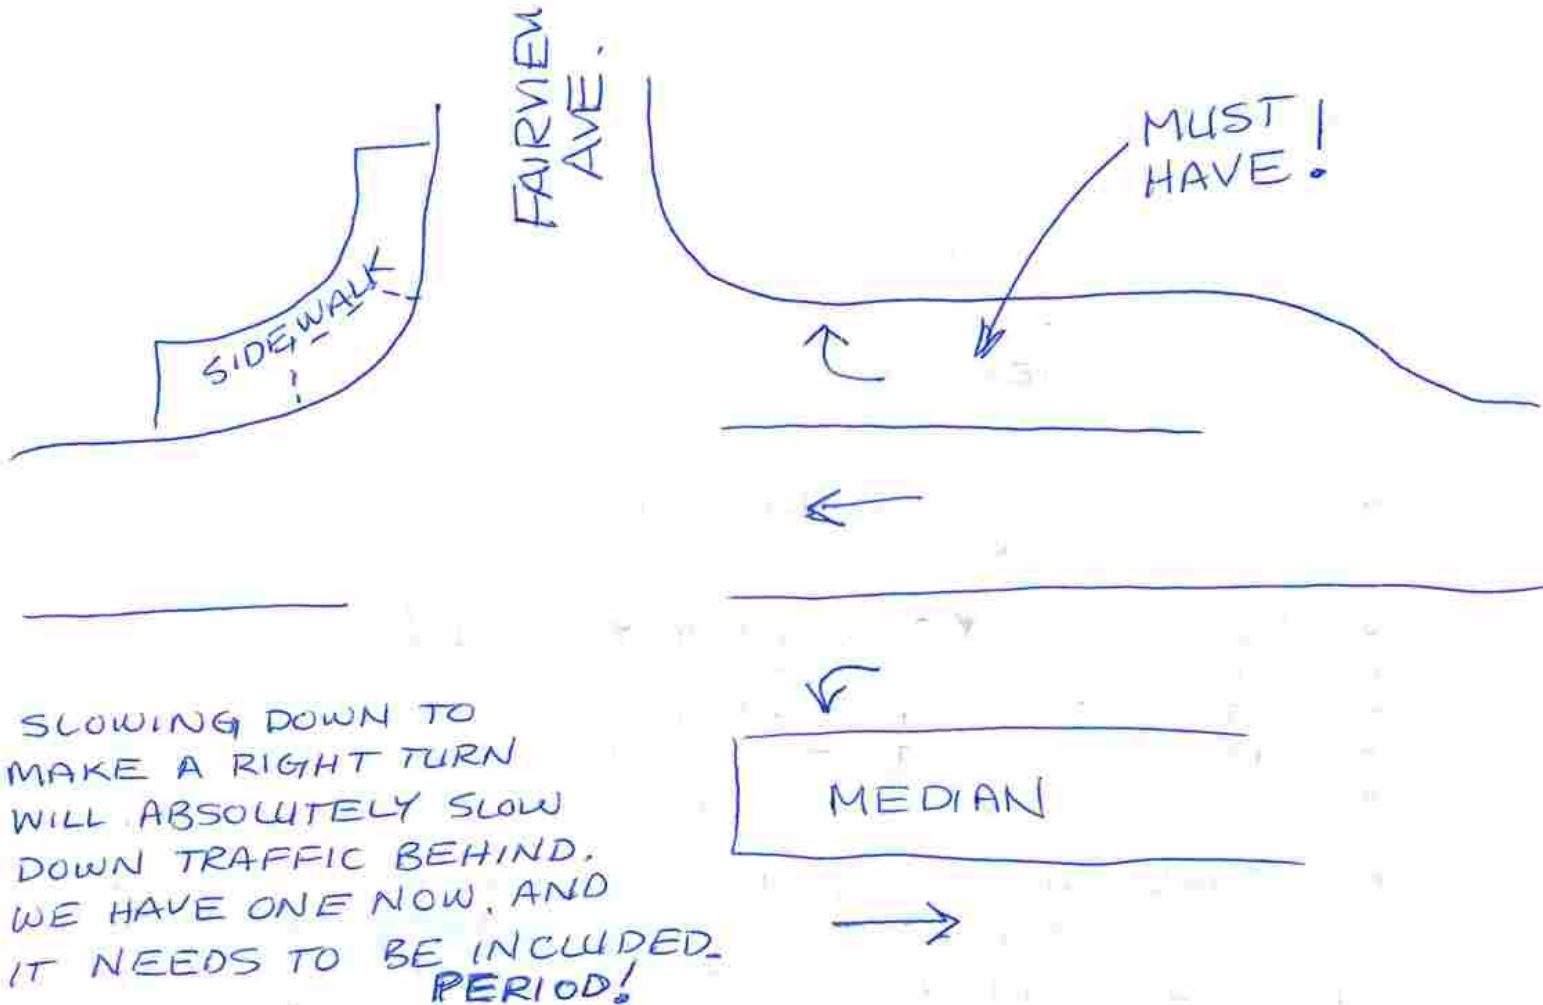 FAIRVIEW
AVE.
MUST
HAVE!
SIDEWALK
SLOWING DOWN TO
MAKE A RIGHT TURN
WILL ABSOLUTELY SLOW
DOWN TRAFFIC BEHIND.
WE HAVE ONE NOW. AND
IT NEEDS TO BE INCLUDED.
PERIOD!
MEDIAN